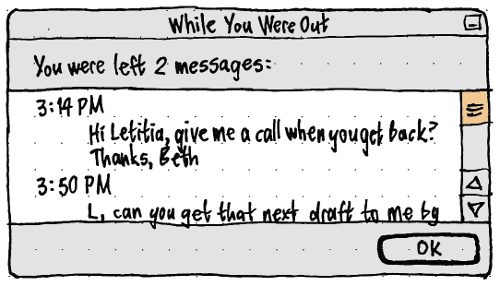 While You Were Out
You were left 2 messages:
3:14 PM
Hi Letitia, give me a call when you get back?
Thanks, Beth
3:50 PM
L, can you get that next draft to me by
OK